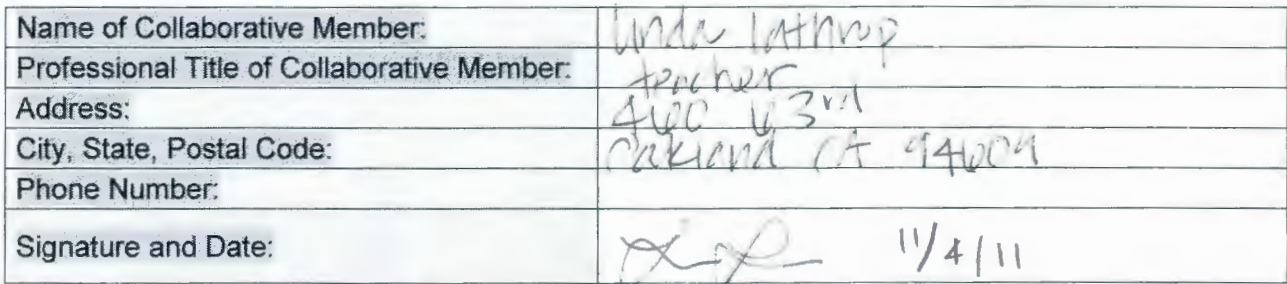 Name of Collaborative Member: Linda Lathrop
Professional Title of Collaborative Member: teacher
Address: 460 63rd
City, State, Postal Code: Oakland CA 94609
Phone Number:
Signature and Date: 11/4/11